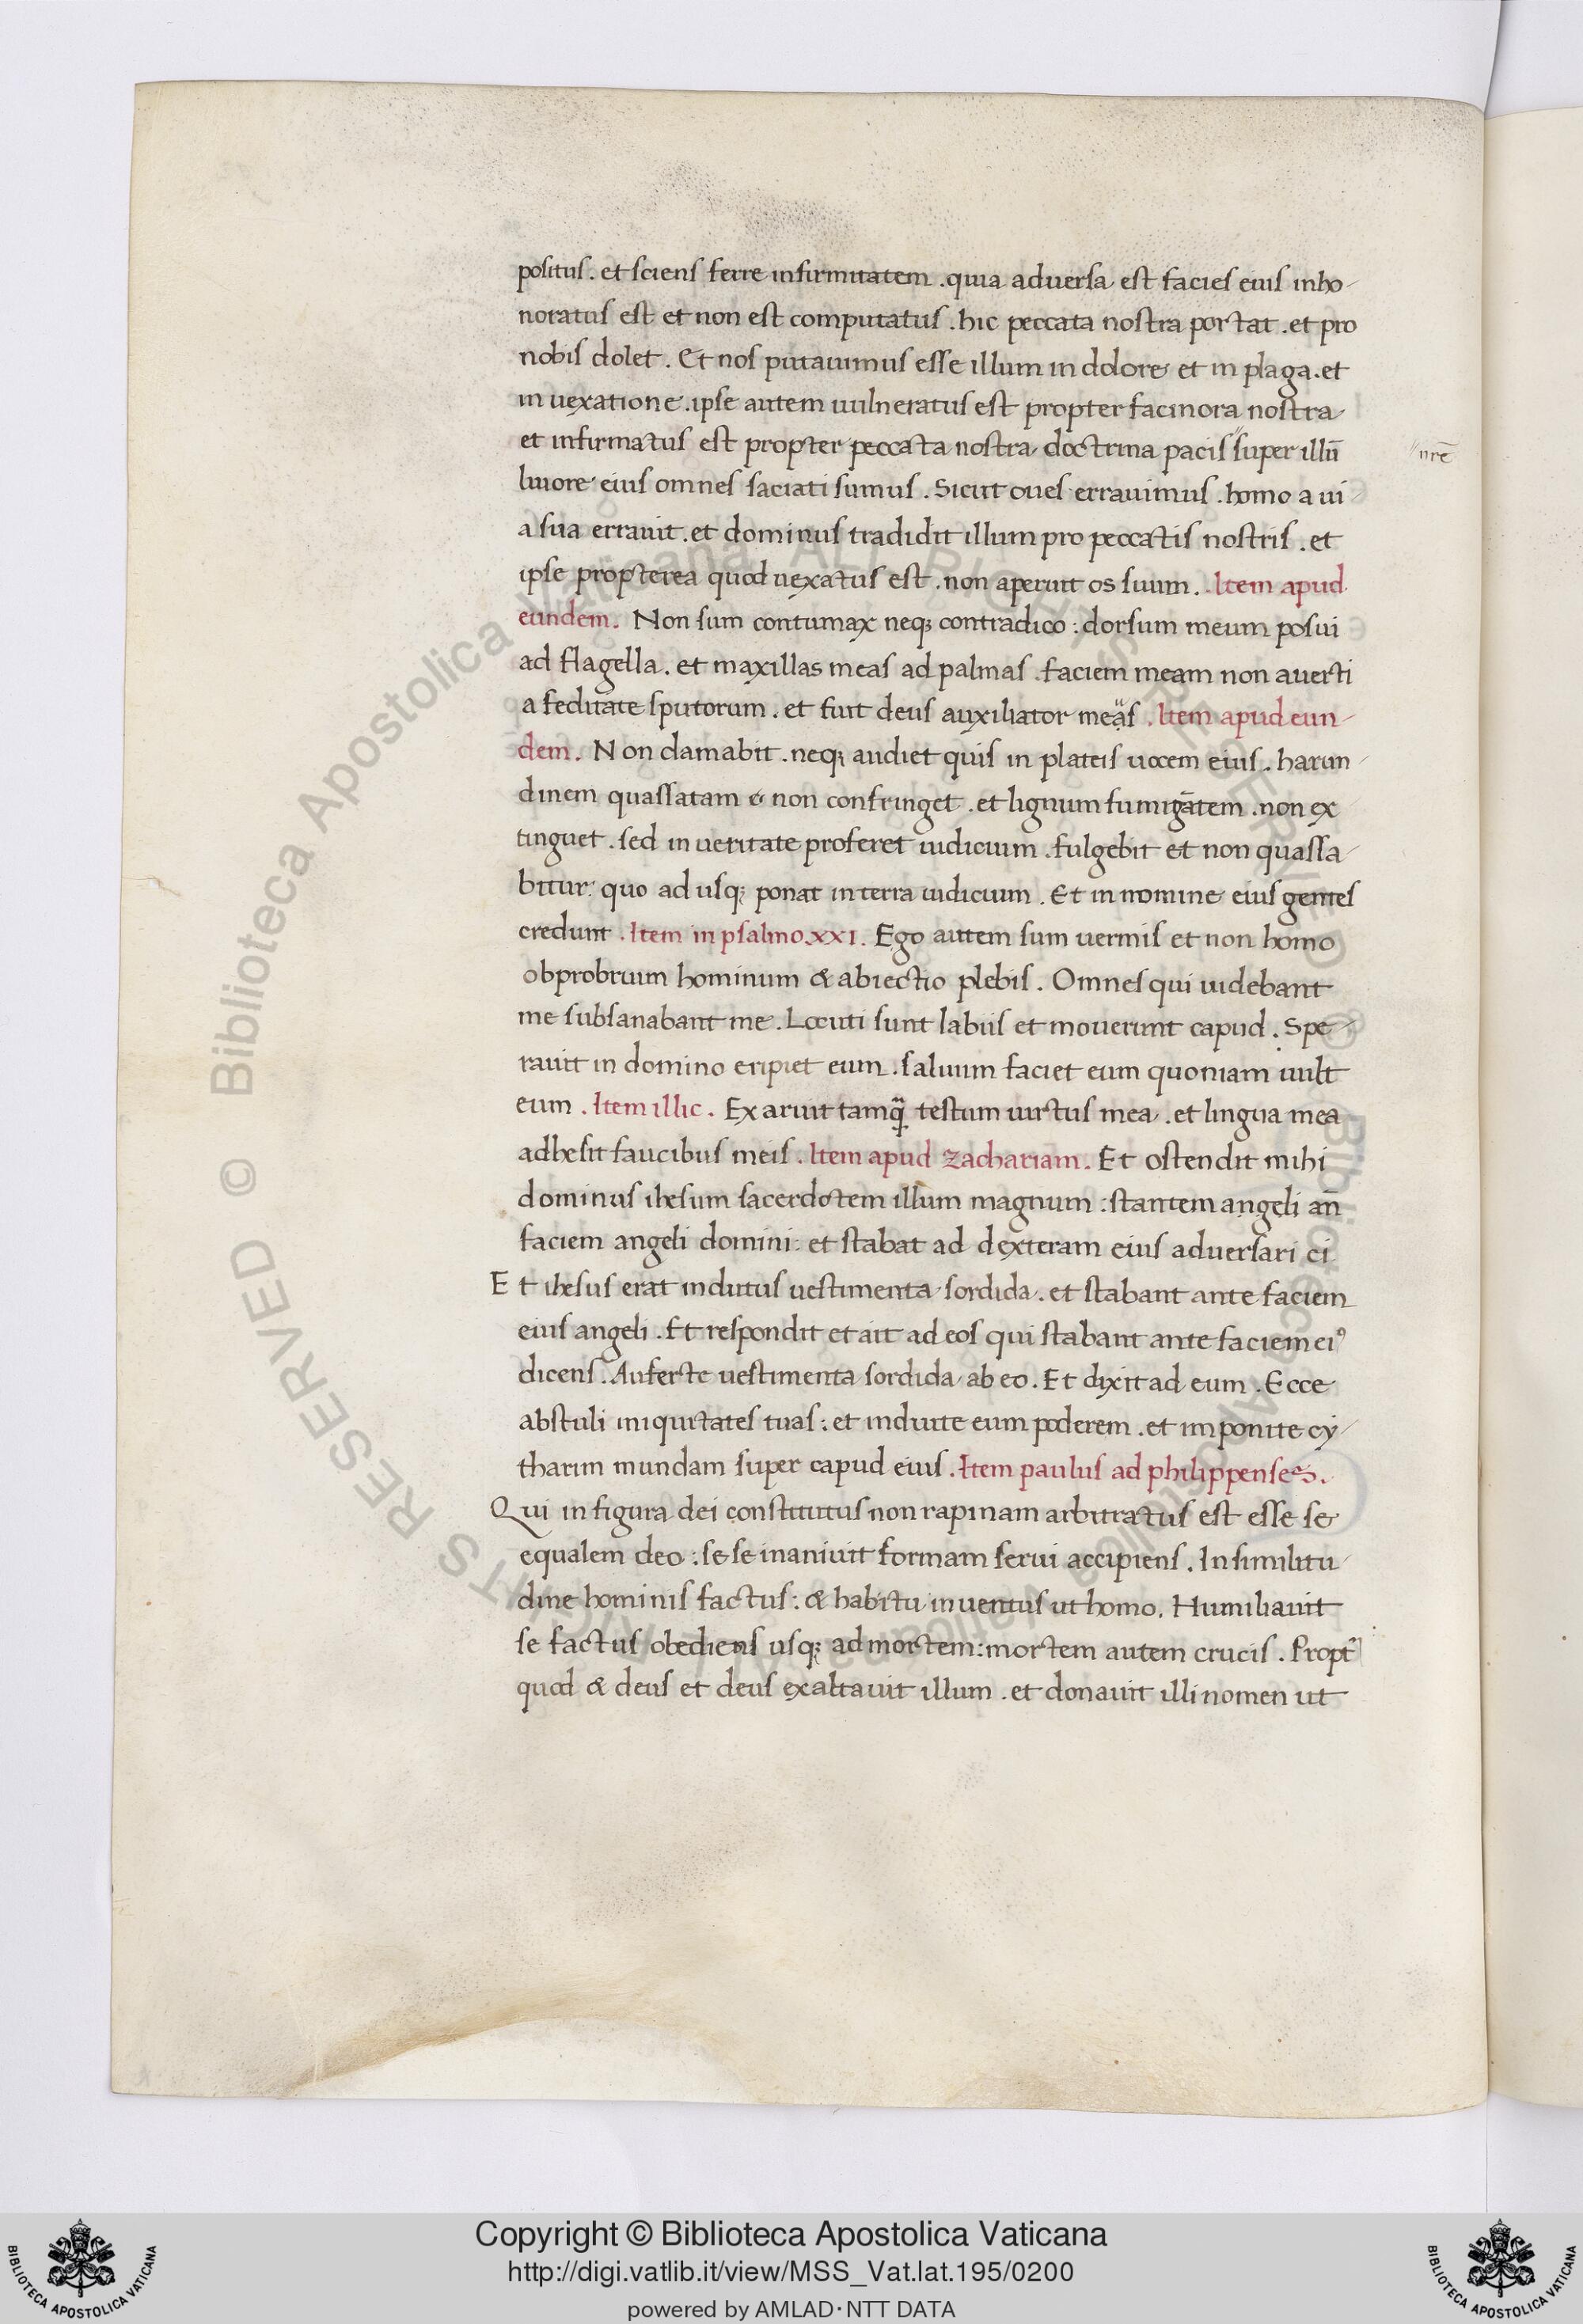 positus . et sciens ferre infirmitatem . quia aduersa est facies eius inho-
noratus est et non est computatus . hic peccata nostra portat . et pro
nobis dolet . Et nos putauimus esse illum in dolore et in plaga . et
in uexatione . ipse autem uulneratus est propter facinora nostra
et infirmatus est propter peccata nostra doctrina pacis "super illū
"nrē
liuore eius omnes saciati sumus . Sicut oues errauimus . homo a ui-
a sua errauit . et dominus tradidit illum pro peccatis nostris . et
ipse propterea quod uexatus est . non aperuit os suum . Item apud
eundem . Non sum contumax neq; contradico : dorsum meum posui
ad flagella . et maxillas meas ad palmas . faciem meam non auerti
a feditate sputorum . et fuit deus auxiliator meas . Item apud eun-
dem . Non clamabit . neq; audiet quis in plateis uocem eius . harun-
dinem quassatam non confringet . et lignum fumigātem . non ex-
tinguet . sed in ueritate proferet iudicium . fulgebit et non quassa-
bitur : quo ad usq; ponat in terra iudicium . Et in nomine eius gentes
credunt . Item in psalmo . xxı . Ego autem sum uermis et non homo
obprobrium hominum & abiectio plebis . Omnes qui uidebant
me subsanabant me . Locuti sunt labiis et mouerunt capud . Spe-
rauit in domino eripiet eum . saluum faciet eum quoniam uult
eum . Item illic . Exaruit tamq̄ testum uirtus mea . et lingua mea
adhesit faucibus meis . Item apud zachariam . Et ostendit mihi
dominus ihesum sacerdotem illum magnum : stantem angeli añ
faciem angeli domini : et stabat ad dexteram eius aduersari ei
Et ihesus erat indutus uestimenta sordida . et stabant ante faciem
eius angeli . Et respondit et ait ad eos qui stabant ante faciem eiꝰ
dicens . Auferte uestimenta sordida ab eo . Et dixit ad eum . Ecce
abstuli iniquitates tuas : et induite eum poderem . et imponite cy-
tharim mundam super capud eius . Item paulus ad philippenses .
Qui in figura dei constitutus non rapinam arbitratus est esse se
equalem deo : se se inaniuit formam serui accipiens . In similitu-
dine hominis factus : & habitu inuentus ut homo . Humiliauit
se factus obediens usq; ad mortem : mortem autem crucis . Propt̃
quod & deus et deus exaltauit illum . et donauit illi nomen ut
© Biblioteca Apostolica Vaticana ALL RIGHTS RESERVED © Biblioteca Apostolica Vaticana ALL RIGHTS RESERVED
Copyright © Biblioteca Apostolica Vaticana
http://digi.vatlib.it/view/MSS_Vat.lat.195/0200
powered by AMLAD·NTT DATA
BIBLIOTECA APOSTOLICA VATICANA
BIBLIOTECA APOSTOLICA VATICANA